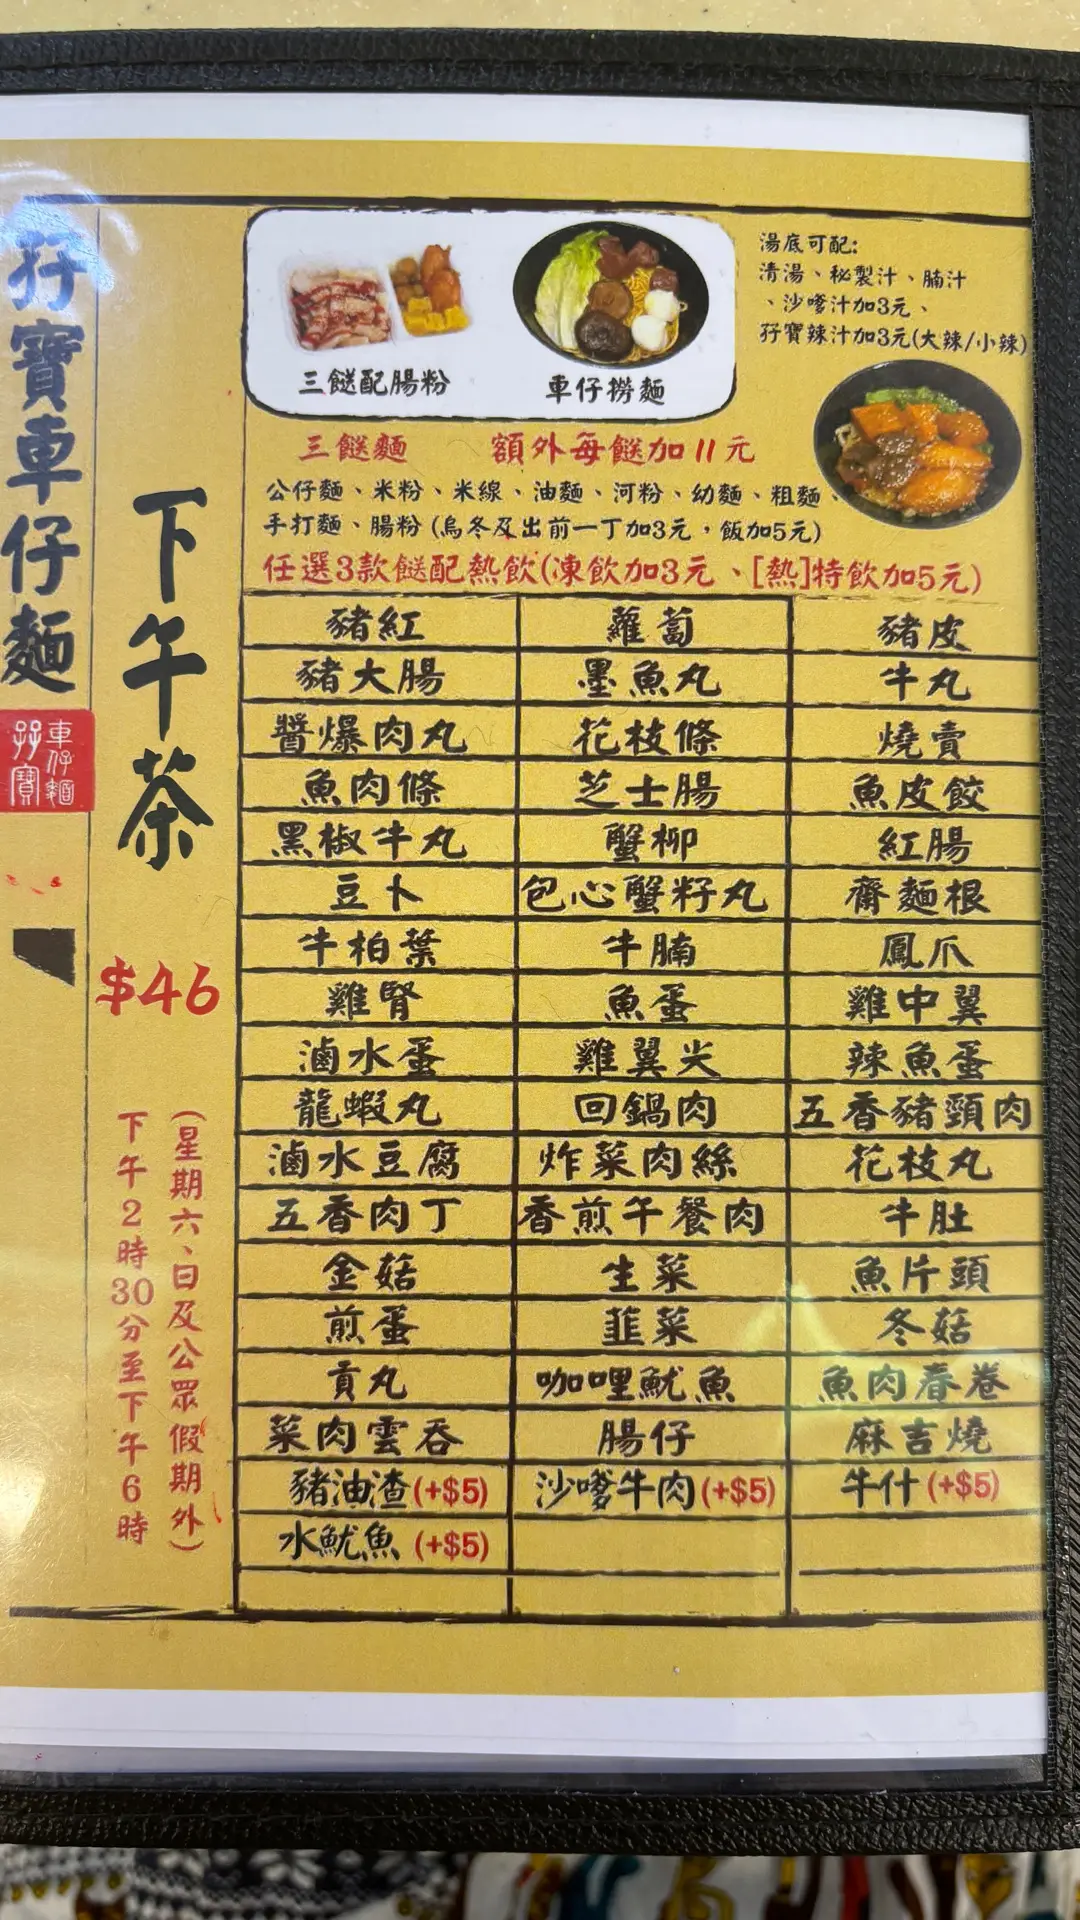 孖寶車仔麵
車仔麵
孖寶
下午茶
$46
(星期六、日及公眾假期外)
下午2時30分至下午6時
三餸配腸粉
車仔撈麵
湯底可配:
清湯、秘製汁、腩汁
、沙嗲汁加3元、
孖寶辣汁加3元(大辣/小辣)
三餸麵 額外每餸加11元
公仔麵、米粉、米線、油麵、河粉、幼麵、粗麵、
手打麵、腸粉 (烏冬及出前一丁加3元，飯加5元)
任選3款餸配熱飲(凍飲加3元、[熱]特飲加5元)
豬紅 蘿蔔 豬皮
豬大腸 墨魚丸 牛丸
醬爆肉丸 花枝條 燒賣
魚肉條 芝士腸 魚皮餃
黑椒牛丸 蟹柳 紅腸
豆卜 包心蟹籽丸 齋麵根
牛柏葉 牛腩 鳳爪
雞腎 魚蛋 雞中翼
滷水蛋 雞翼尖 辣魚蛋
龍蝦丸 回鍋肉 五香豬頸肉
滷水豆腐 炸菜肉絲 花枝丸
五香肉丁 香煎午餐肉 牛肚
金菇 生菜 魚片頭
煎蛋 韮菜 冬菇
貢丸 咖哩魷魚 魚肉春卷
菜肉雲吞 腸仔 麻吉燒
豬油渣(+$5) 沙嗲牛肉(+$5) 牛什(+$5)
水魷魚 (+$5)